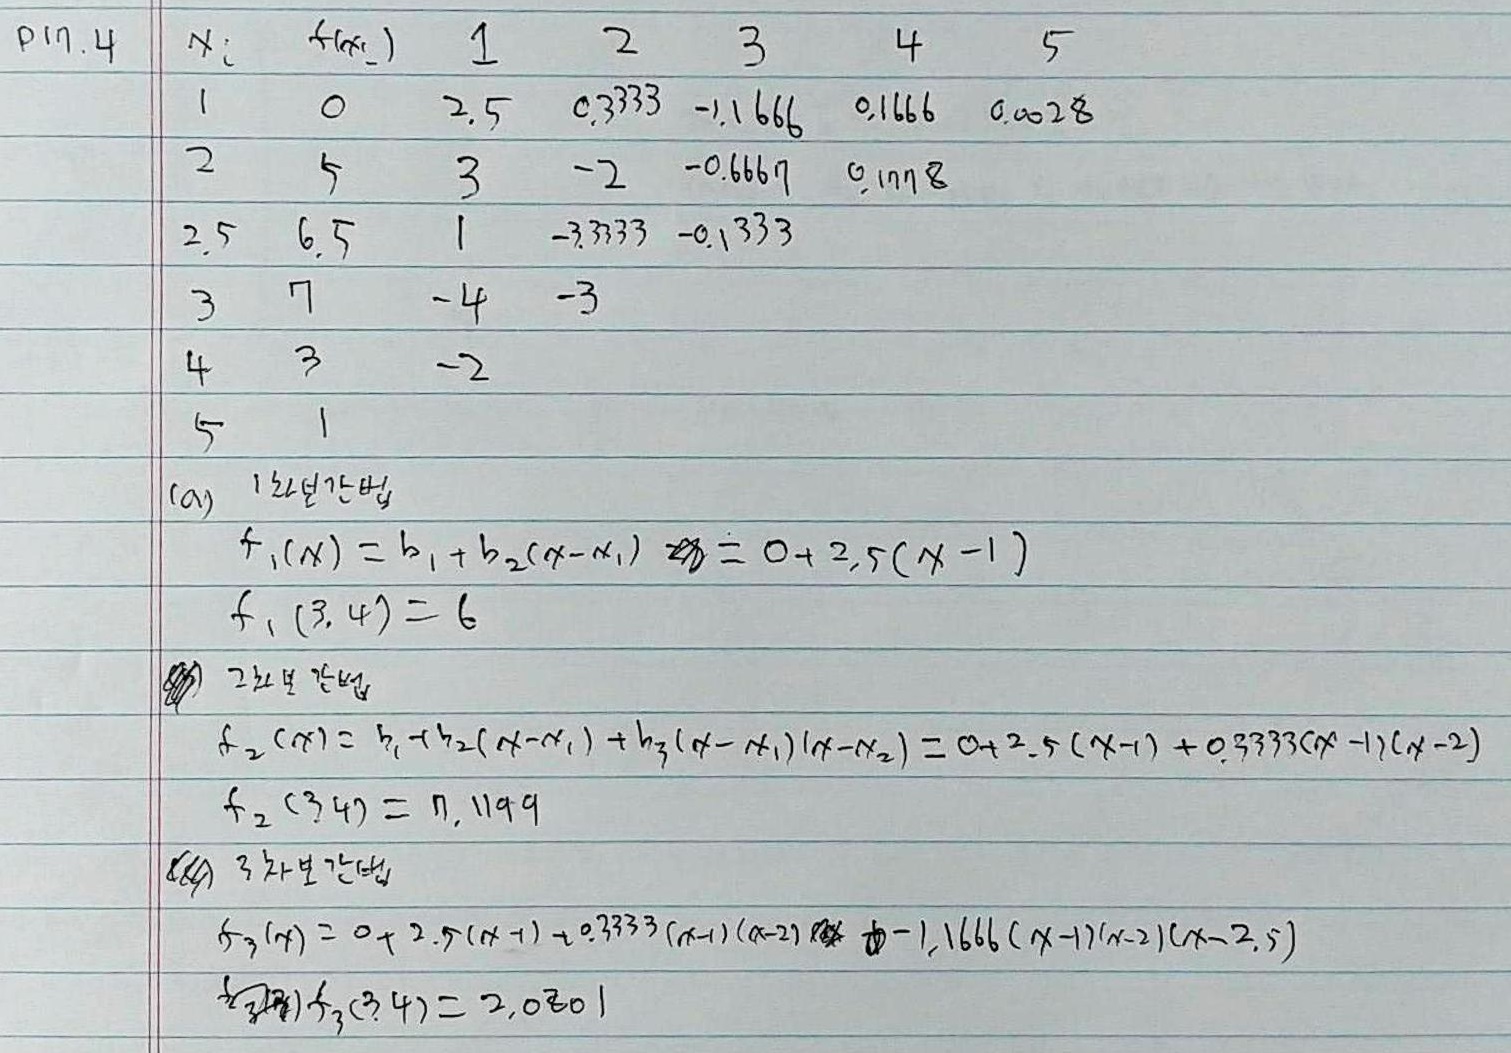 P17.4 xi f(xi) 1 2 3 4 5
1 0 2.5 0.3333 -1.1666 0.1666 0.0028
2 5 3 -2 -0.6667 0.1778
2.5 6.5 1 -3.3333 -0.1333
3 7 -4 -3
4 3 -2
5 1
(a) 1차보간법
f₁(x) = b₁ + b₂(x-x₁) = 0+2.5(x-1)
f₁(3.4) = 6
2차보간법
f₂(x) = b₁+b₂(x-x₁)+b₃(x-x₁)(x-x₂) = 0+2.5(x-1)+0.3333(x-1)(x-2)
f₂(3.4) = 7.1199
3차보간법
f₃(x) = 0+2.5(x-1)+0.3333(x-1)(x-2) -1.1666(x-1)(x-2)(x-2.5)
f₃(3.4) = 2.0801